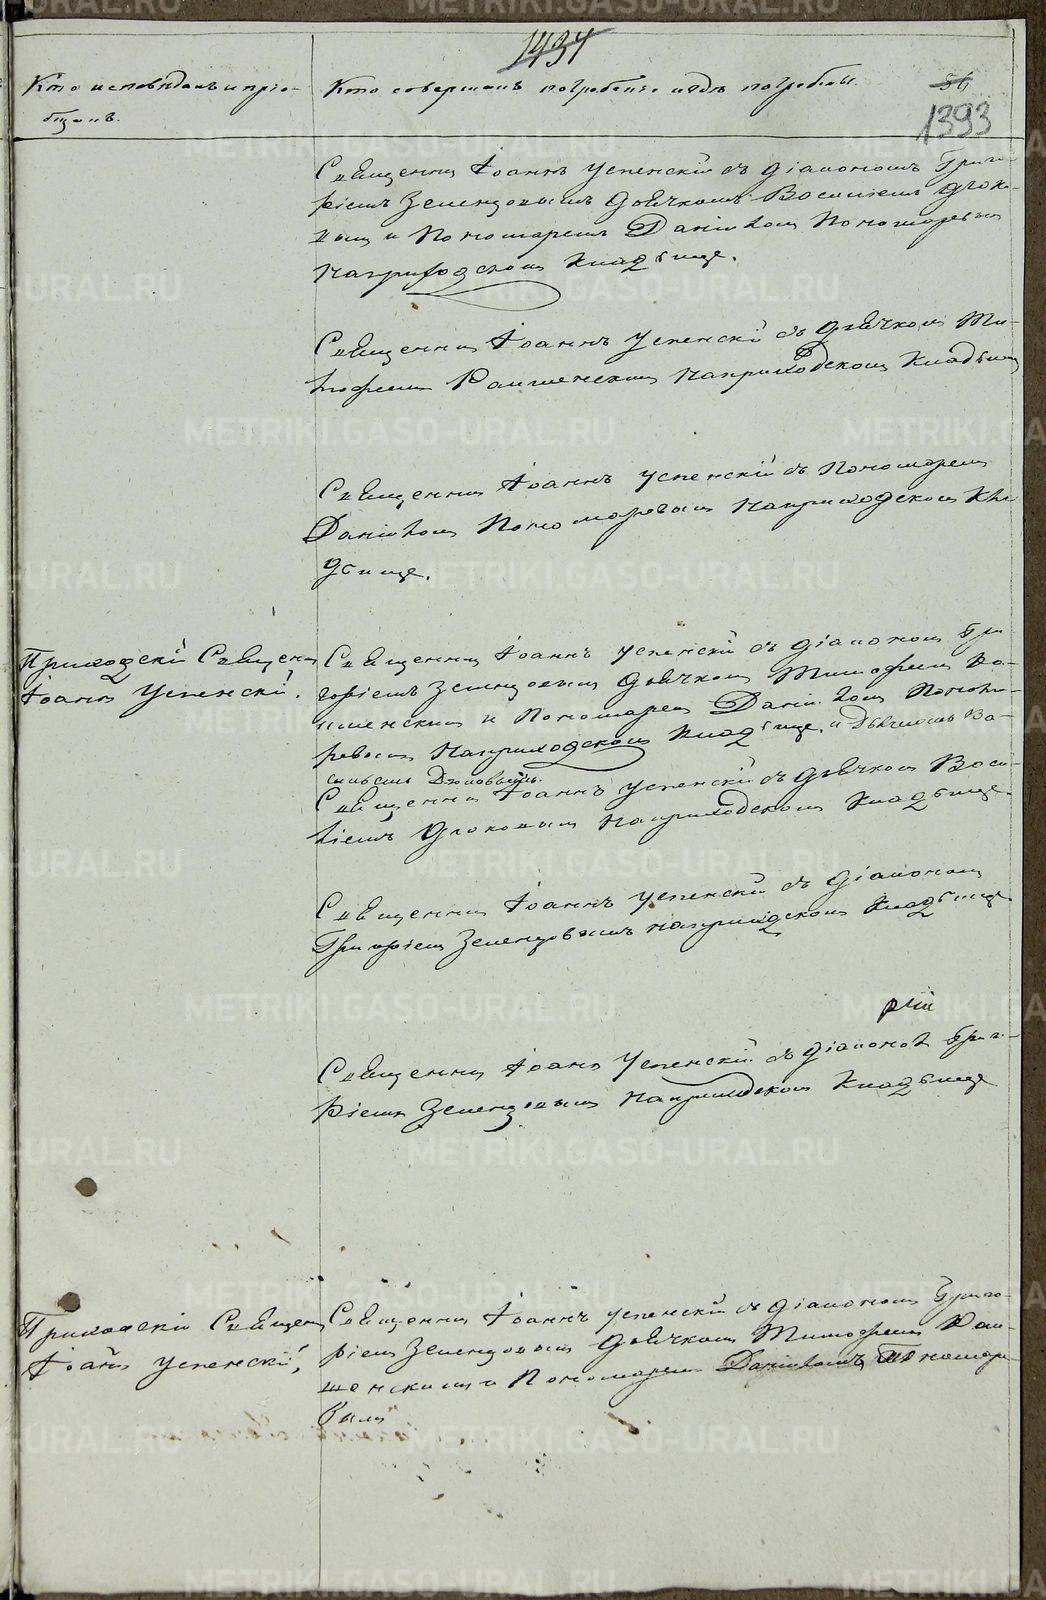 1434
Кто исповѣдалъ и прiо-
бщалъ.
Кто совершалъ погребенiе и гдѣ погребены.
84
1393
Священникъ Iоаннъ Успенскiй съ дiакономъ Григо-
рiемъ Зеленцовымъ дьячкомъ Василiемъ
и Пономаремъ Данiиломъ Пономаревымъ
на приходскомъ кладбище.
Священникъ Iоаннъ Успенскiй съ дьячкомъ Ти-
мофеемъ на приходскомъ кладбищѣ
Священникъ Iоаннъ Успенскiй съ Пономаремъ
Данiиломъ Пономаревымъ на приходскомъ кла
дбище.
Приходскiй Священ
Iоаннъ Успенскiй.
Священникъ Iоаннъ Успенскiй съ дiакономъ Гри
горiемъ Зеленцовымъ дьячкомъ Тимофеемъ Ра-
и Пономаремъ Данiиломъ Понома-
ревымъ на приходскомъ кладбище. и дьячкомъ Ва-
сильемъ
Священникъ Iоаннъ Успенскiй съ дьячкомъ Васи-
лiемъ на приходскомъ кладбище.
Священникъ Iоаннъ Успенскiй съ дiакономъ
Григорiемъ Зеленцовымъ на приходскомъ кладбище.
Священникъ Iоаннъ Успенскiй съ дiакономъ Григо-
рiемъ Зеленцовымъ на приходскомъ кладбище
Приходскiй Священ
Iоаннъ Успенскiй,
Священникъ Iоаннъ Успенскiй съ дiакономъ Григо-
рiемъ Зеленцовымъ дьячкомъ Тимофеемъ
и Пономаремъ Данiиломъ Пономаре-
вымъ
METRIKI.GASO-URAL.RU